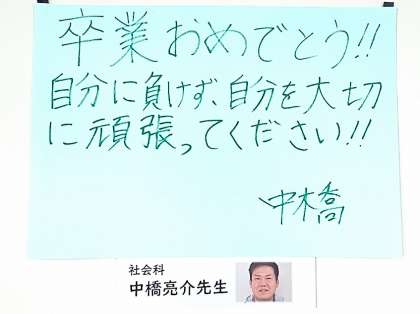 卒業おめでとう!!
自分に負けず、自分を大切
に頑張ってください!!
中橋
社会科
中橋亮介先生